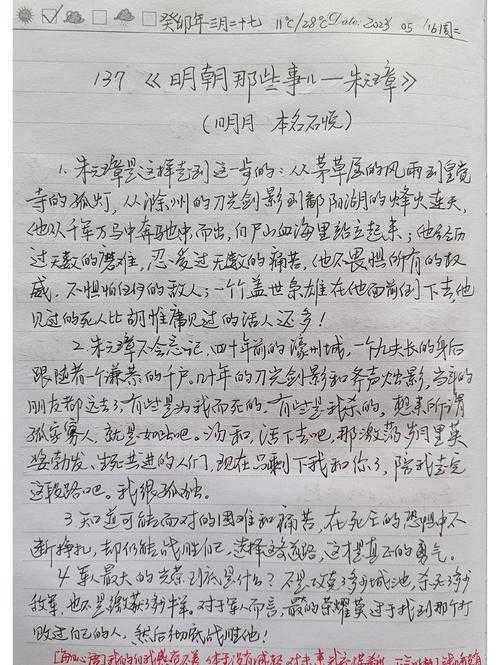 癸卯年三月二十七 11℃/28℃ Date: 2023 05 /16 周二
137《明朝那些事儿—朱元璋》
(明月 本名石悦)
1. 朱元璋是这样走到这一步的：从茅草屋的风雨到皇觉
寺的孤灯，从滁州的刀光剑影到鄱阳湖的烽火连天，
他从千军万马中奔驰而出，自尸山血海里站立起来；他经历
过无数的磨难，忍受过无数的痛苦，他不畏惧所有的权
威，不惧怕的敌人；一个个盖世枭雄在他面前倒下去，他
见过的死人比胡惟庸见过的活人还多！
2. 朱元璋不会忘记，四十年前的濠州城，一个九夫长的身后
跟随着一个谦恭的千户。几十年的刀光剑影和斧声烛影，当年的
朋友都逝去了，有些是为我而死的，有些是我杀的，想来所谓
孤家寡人，就是如此吧。汤和，活下去吧，那激荡岁月里英
姿勃发、生死共进的人们，现在只剩下我和你了，陪我走完
这段路吧。我很孤独。
3. 知道可能面对的困难和痛苦，在死亡的恐惧中不
断挣扎，却仍能战胜自己，选择这条道路，这才是真正的勇气。
4. 军人最大的光荣到底是什么？不是攻克了多少城池，杀死了多少
敌军，也不是缴获了多少战利品。对于军人而言，最大的荣耀莫过于找到那个打
败过自己的人，然后彻底战胜他！